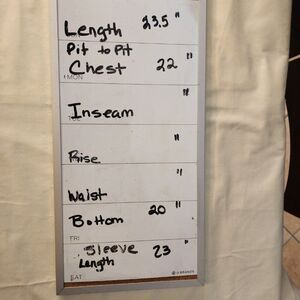 Length 23.5 "
Pit to Pit
Chest 22 "
MON
Inseam "
Rise "
Waist "
Bottom 20 "
FRI
Sleeve 23 "
Length
SAT